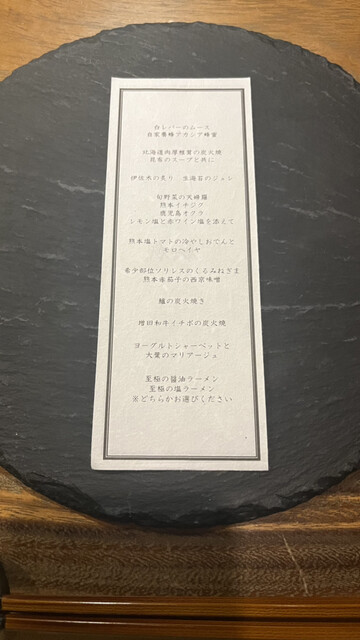 白レバーのムース
自家養蜂アカシア蜂蜜
北海道肉厚椎茸の炭火焼
昆布のスープと共に
伊佐木の炙り 生海苔のジュレ
旬野菜の天婦羅
熊本イチジク
鹿児島オクラ
レモン塩と赤ワイン塩を添えて
熊本塩トマトの冷やしおでんと
モロヘイヤ
希少部位ソリレスのくるみねぎま
熊本赤茄子の西京味噌
鰻の炭火焼き
増田和牛イチボの炭火焼
ヨーグルトシャーベットと
大葉のマリアージュ
至極の醤油ラーメン
至極の塩ラーメン
※どちらかお選びください